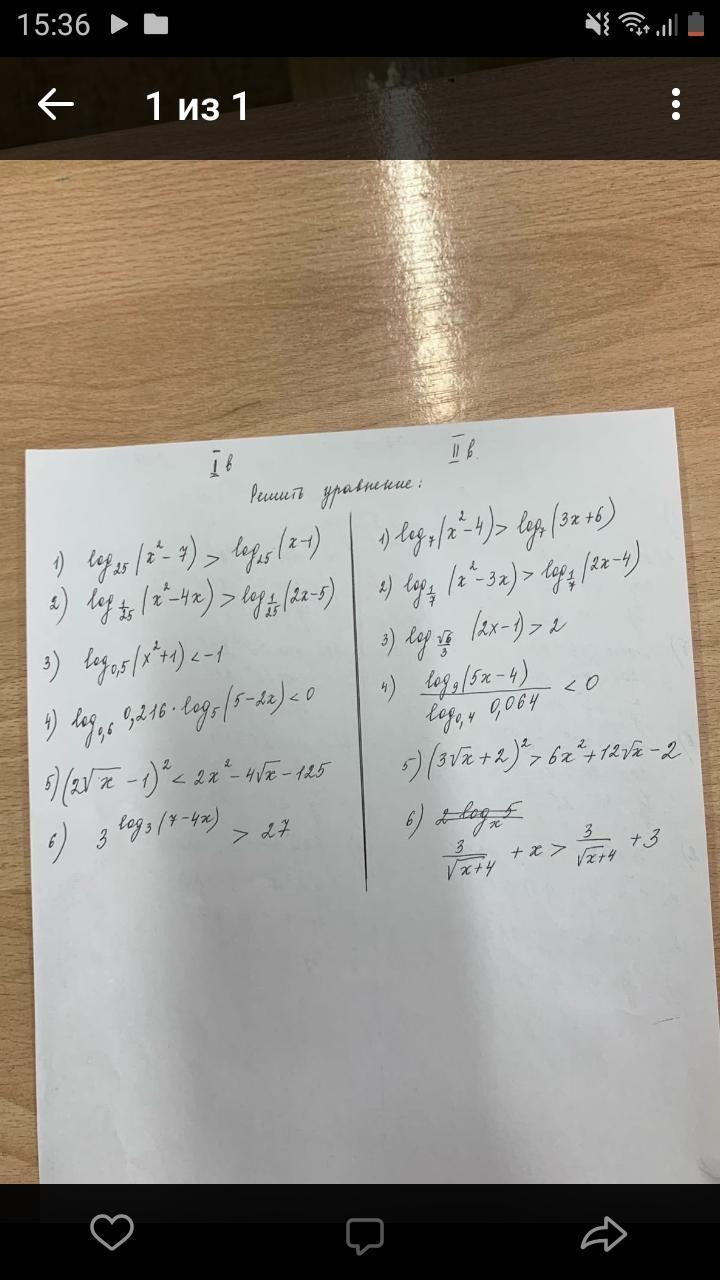 15:36
1 из 1
I в
II в.
Решить уравнение:
1) log₂₅(x²-7) > log₂₅(x-1)
2) log_{1/25}(x²-4x) > log_{1/25}(2x-5)
3) log₀,₅(x²+1) < -1
4) log₀,₆ 0,216 · log₅(5-2x) < 0
5) (2√x - 1)² < 2x² - 4√x - 125
6) 3^{log₃(7-4x)} > 27
1) log₇(x²-4) > log₇(3x+6)
2) log_{1/7}(x²-3x) > log_{1/7}(2x-4)
3) log_{√6/3}(2x-1) > 2
4) log₉(5x-4) / log₀,₄ 0,064 < 0
5) (3√x + 2)² > 6x² + 12√x - 2
6) 2 logₓ5
3/√x+4 + x > 3/√x+4 + 3